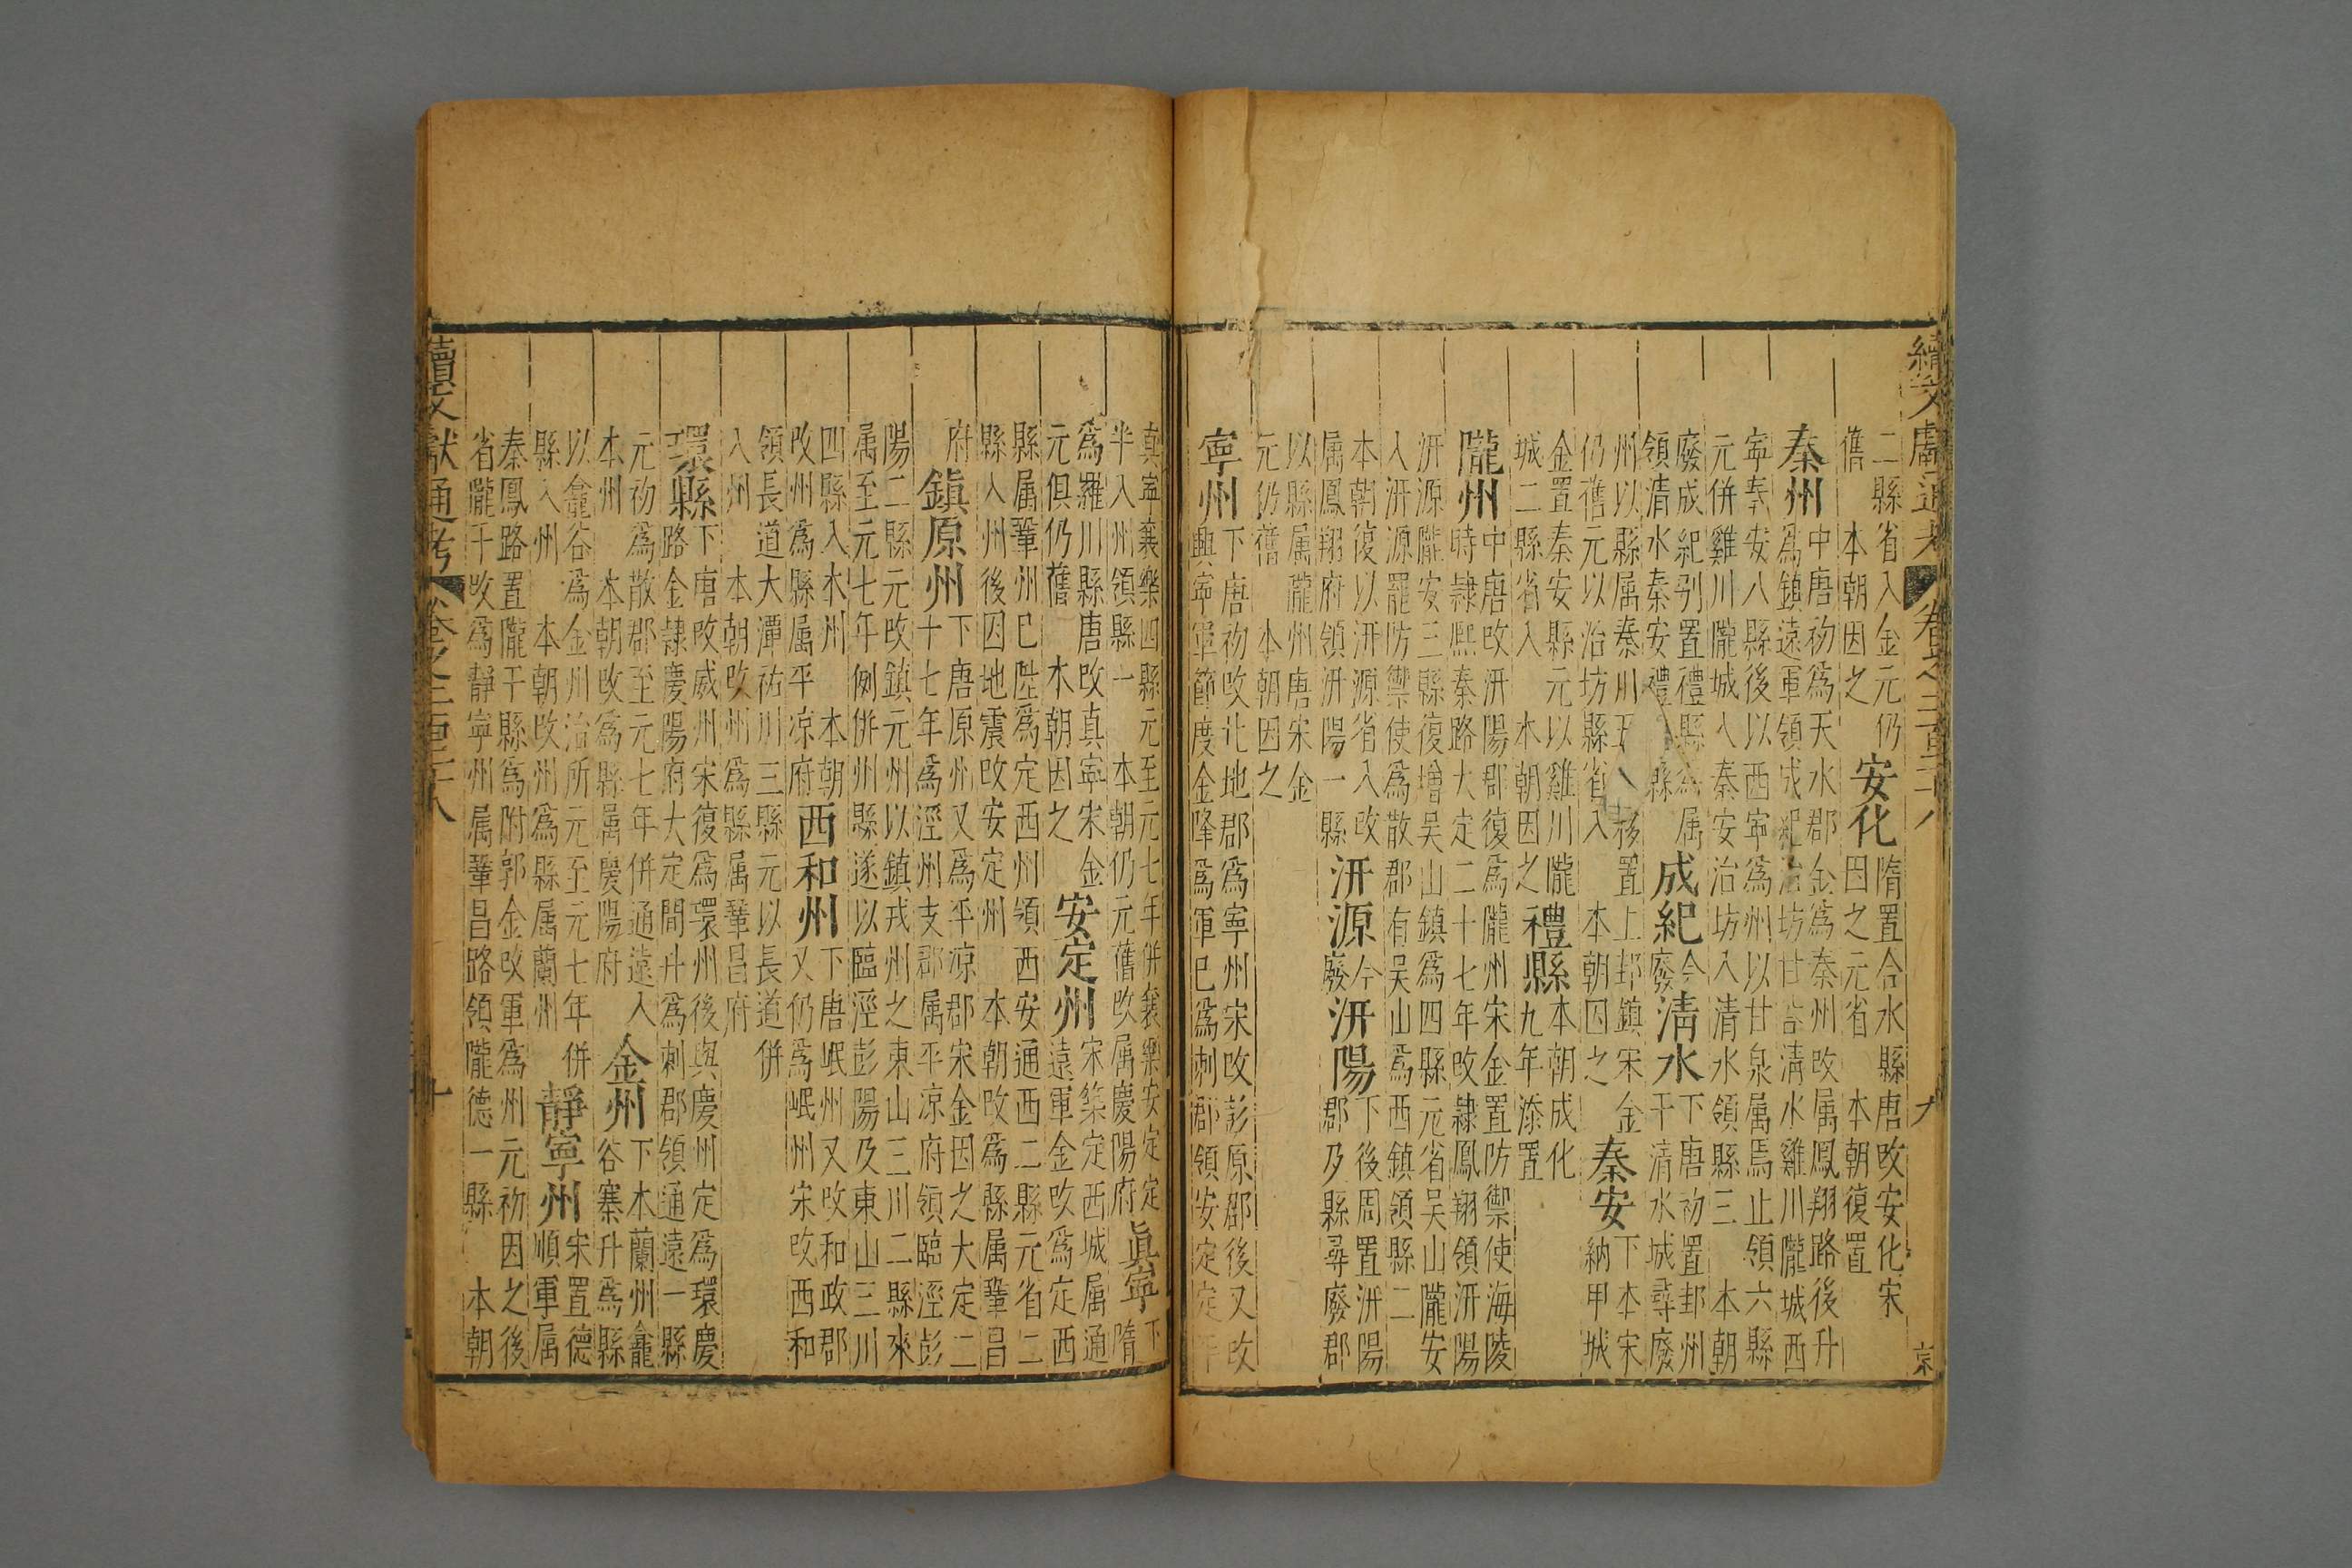 續文獻通考 卷之二百二十八 九 京
二縣省入金元仍
舊 本朝因之
安化
隋置合水縣唐改安化宋
因之元省 本朝復置
秦州
中唐初為天水郡金為秦州改属鳳翔路後升
為鎮遠軍領成紀冶坊甘谷清水雞川隴城西
寧秦安八縣後以西寧為州以甘泉属焉止領六縣
元併雞川隴城入秦安治坊入清水領縣三 本朝
廢成紀别置禮縣為属
領清水秦安禮 縣
成紀
今廢
清水
下唐初置邽州
干清水城尋廢
州以縣属秦川 移置上邽鎮宋金
仍舊元以治坊縣省入 本朝因之
秦安
下本宋
納甲城
金置秦安縣元以雞川隴
城二縣省入 本朝因之
禮縣
本朝成化
九年添置
隴州
中唐改汧陽郡復為隴州宋金置防禦使海陵
時隷熙秦路大定二十七年改隷鳳翔領汧陽
汧源隴安三縣復增吴山鎮為四縣元省吴山隴安
入汧源罷防禦使為散郡有吴山為西鎮領縣二
本朝復以汧源省入改
属鳳翔府領汧陽一縣
汧源
今廢
汧陽
下後周置汧陽
郡及縣尋廢郡
以縣属隴州唐宋金
元仍舊 本朝因之
寧州
下唐初改北地郡為寧州宋改彭原郡後又改
興寧軍節度金降為軍已為刺郡領安定定平
真寧襄樂四縣元至元七年併襄樂安定定
半入州領縣一 本朝仍元舊改属慶陽府
真寧
下隋
為羅川縣唐改真寧宋金
元俱仍舊 本朝因之
安定州
宋築定西城属通
遠軍金改為定西
縣属鞏州已陞為定西州領西安通西二縣元省二
縣入州後因地震改安定州 本朝改為縣属鞏昌
府
鎮原州
下唐原州又為平凉郡宋金因之大定二
十七年為涇州支郡属平凉府領臨涇彭
陽二縣元改鎮元州以鎮戎州之東山三川二縣來
属至元七年例併州縣遂以臨涇彭陽及東山三川
四縣入本州 本朝
改州為縣属平凉府
西和州
下唐岷州又改和政郡
又仍為岷州宋改西和
領長道大潭祐川三縣元以長道併
入州 本朝改州為縣属鞏昌府
環縣
下唐改威州宋復為環州後與慶州定為環慶
路金隷慶陽府大定間升為刺郡領通遠一縣
元初為散郡至元七年併通遠入
本州 本朝改為縣属慶陽府
金州
下本蘭州龕
谷寨升為縣
以龕谷為金州治所元至元七年併
縣入州 本朝改州為縣属蘭州
靜寧州
宋置德
順軍属
秦鳳路置隴干縣為附郭金改軍為州元初因之後
省隴干改為靜寧州属鞏昌路領隴德一縣 本朝
續文獻通考 卷之二百二十八 十